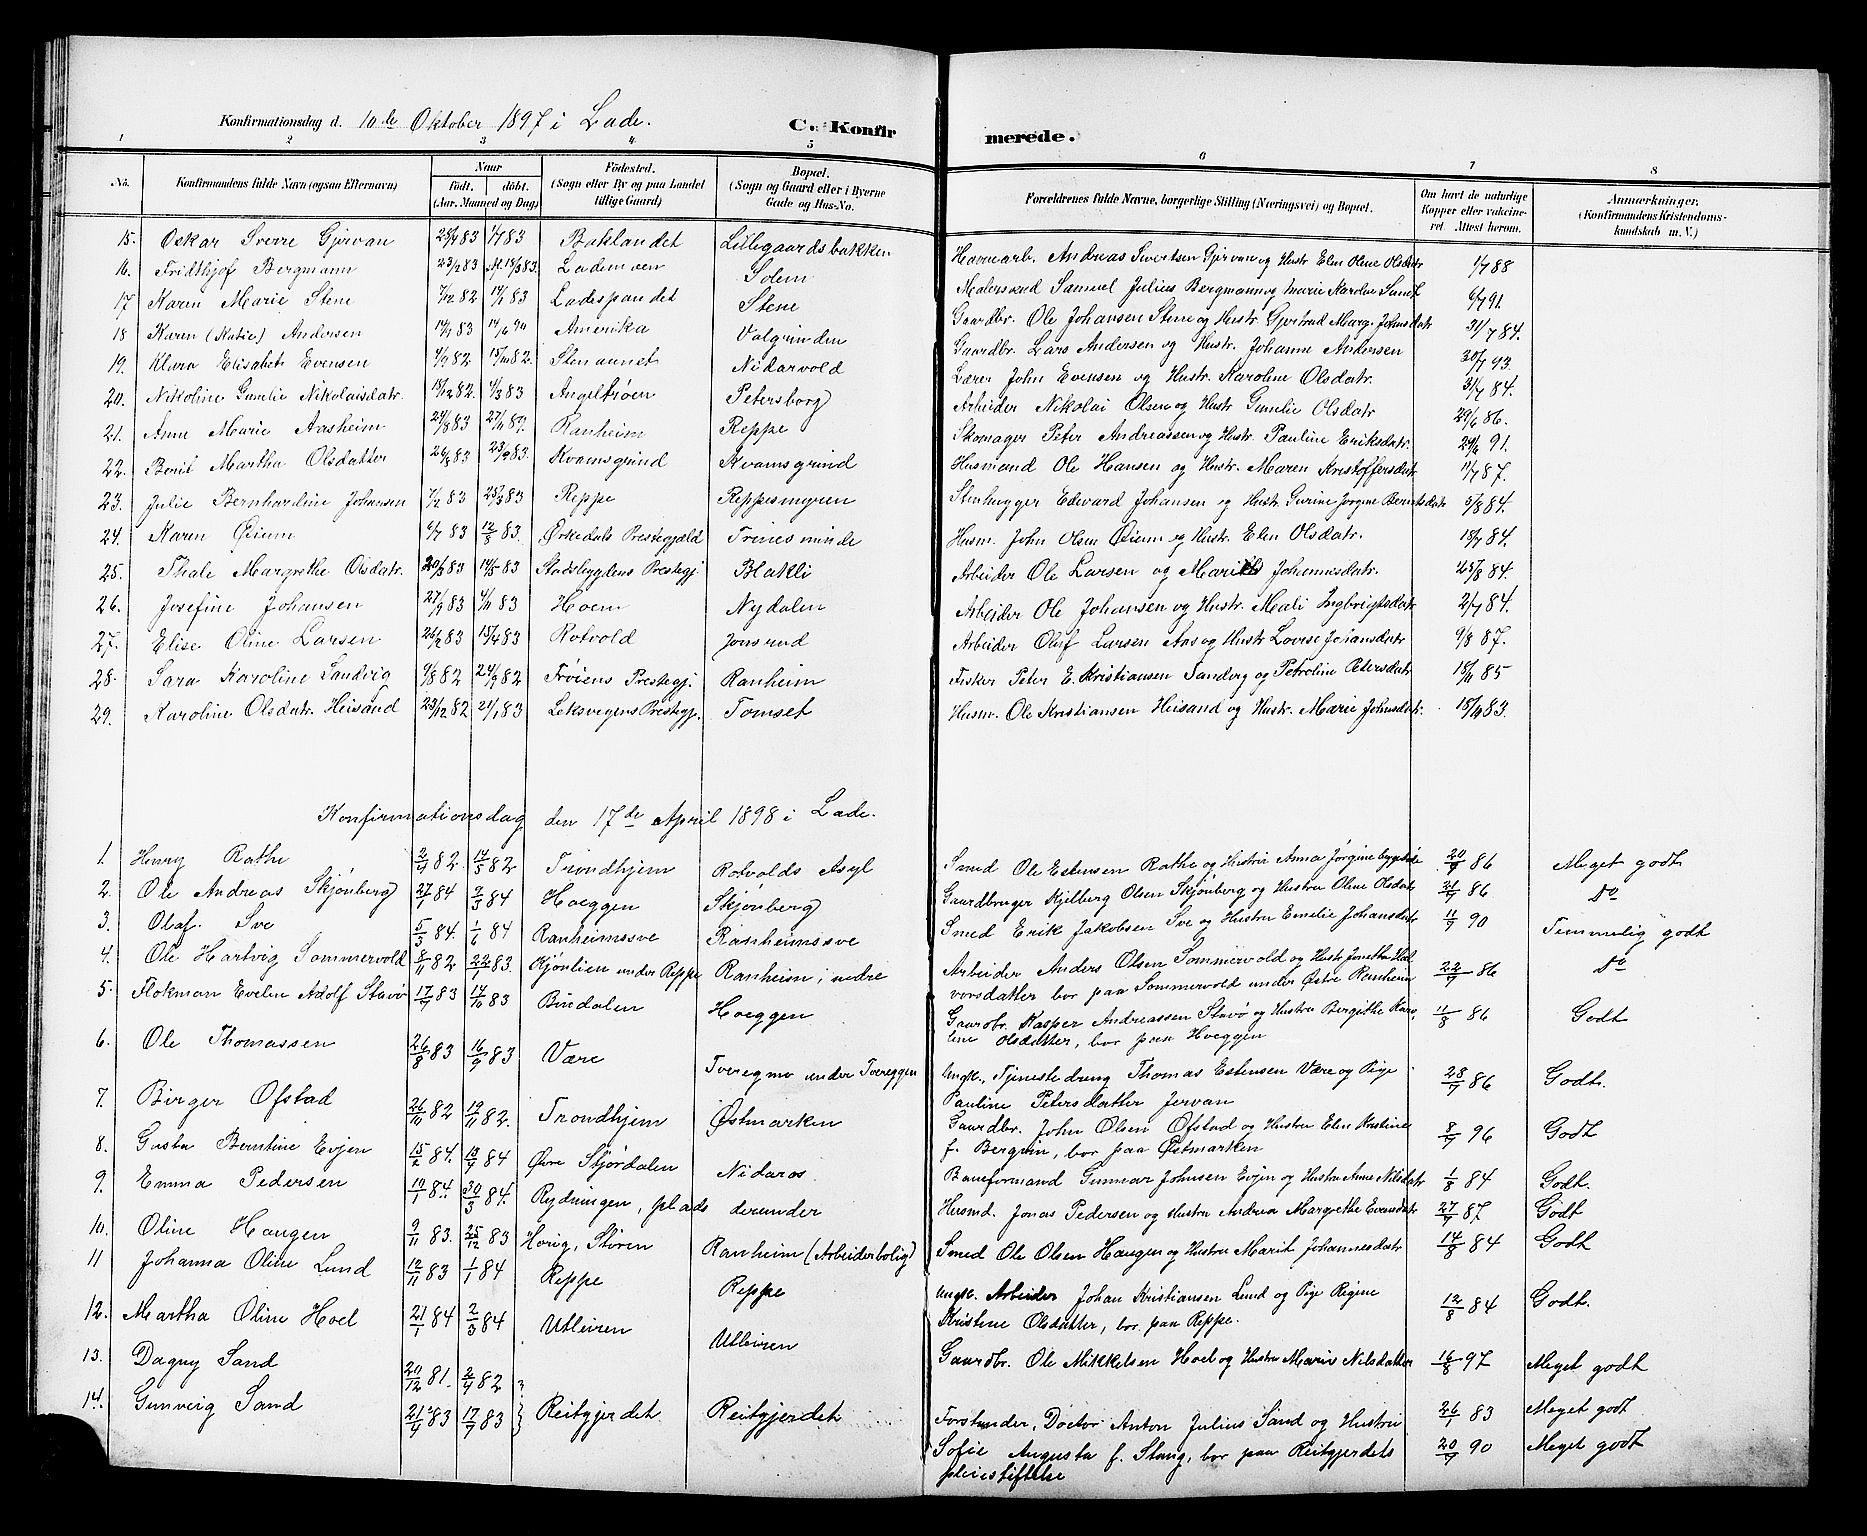 Konfirmationsdag d. 10de Oktober 1897 i Lade.
C. Konfirmerede.
1 2 3 4 5 6 7 8
No. Konfirmandens fulde Navn (ogsaa Efternavn) Naar født. døbt. (Aar, Maaned og Dag) Födested. (Sogn eller By og paa Landet tillige Gaard) Bopæl. (Sogn og Gaard eller i Byerne Gade og Hus-No. Forældrenes fulde Navne, borgerlige Stilling (Næringsvei) og Bopæl. Om havt de naturlige Kopper eller vakcineret. Attest herom. Anmærkninger. (Konfirmandens Kristendomskundskab m. V.)
15. Oskar Sverre Gjervan 83 1/7 83 Baklandet Lillegaardsbakken Havnearb. Andreas Sivertsen Gjervan og Hustr. Elen Oline Olsdatr 1/7 88
16. Fridthjof Bergmann 23/2 83 13/5 83. Lademoen Solem Malersvend Samuel Julius Bergmann og Marie Karoline 6/7 91.
17 Karen Marie Stene 7/12 82 14/1 83 Ladespandet Stene Gaardbr. Ole Johansen Stene og Hustr. Gjertrud Marg. Johnsdatr 31/7 84.
18 Karen (Katie) Andersen 83 Amerika Valgrinden Gaardbr. Lars Andersen og Hustr. Johanne Andersen 30/7 93.
19. Klara Elisabet Evensen 4/9 82 15/10 82. Stenaunet Nidarvold Lærer John Evensen og Hustr. Karoline Olsdatr. 31/7 84.
20. Nikoline Gunelie Nikolaisdatr. 18/12 82. 4/3 83 Angeltrøen Petersborg Arbeider Nikolai Olsen og Hustr Gunelie Olsdatr 29/6 86.
21. Anne Marie Aasheim 24/8 83 Ranheim Reppe Skomager Peter Andreassen og Hustr. Pauline Eriksdatr. 24/6 91.
22. Berit Martha Olsdatter 26/8 83 23/9 83. Kvamsgrind Kvamsgrind Husmand Ole Hansen og Hustr. Maren Kristoffersdatr 11/7 87.
23. Julie Bernhardine Johansen 7/2 83 25/3 83 Reppe Reppesmyren Stenhugger Edvard Johansen og Hustr. Gurine Jørgine Berntsdatr 5/8 84.
24. Karen Øium 6/7 83 12/8 83. Ørkedals Prestegjæld Trinesminde Husm. John Olsen Øium og Hustr. Elen Olsdatr. 15/7 84.
25. Thale Margrethe Olsdatr. 20/3 83 14/5 83 Stadsbygdens Prestegj. Blakli Arbeider Ole Larsen og Marit Johannesdatr. 25/8 84.
26. Josefine Johansen 27/9 83 4/11 83 Hoem Nydalen Arbeider Ole Johansen og Hustr. Mali Ingbrigtsdatr 2/7 84.
27. Elise Oline Larsen 26/2 83 15/4 83 Rotvold Jonsrud Arbeider Oluf Larsen Aas og Hustr. Lovise Johansdatr 9/8 87.
28. Sara Karoline Sandvig 9/8 82 24/9 82 Frøiens Prestegj. Ranheim Fisker Peter E. Kristiansen Sandvig og Petroline Petersdatr 85
29. Karoline Olsdatr. Heisand 23/12 82 21/1 83 Leksvegens Prestegj. Tomset Husm. Ole Kristiansen Heisand og Hustr. Marie Johnsdatr. 15/10 83.
Konfirmationsdag den 17de April 1898 i Lade.
1. Henry Rathe 2/4 82. 14/5 82 Trondhjem Rotvolds Asyl Smed Ole Estensen Rathe og Hustru Anna Jørgine 20/9 86 Meget godt
2. Ole Andreas Skjønberg 27/1 84 2/3 84 Hoeggen Skjønberg Gaardbruger Kjelberg Olsen Skjønberg og Hustru Oline Olsdatr 21/9 86 Do
3. Olaf Sve 5/3 84. 1/6 84 Ranheimssve Ranheimssve Smed Erik Jakobsen Sve og Hustru Emelie Johansdatr 11/9 90 Temmelig godt
4. Ole Hartvig Sommervold 8/11 82 22/1 83. Kjønlien under Reppe Ranheim, nedre Arbeider Anders Olsen Sommervold og Hustr. Jonetta Halvorsdatter bor paa Sommervold under Østre Ranheim 22/9 86 Do
5. Flokman Evelin Adolf Stavø 17/9 83 14/10 83 Bindalen Hoeggen Gaardbr. Kasper Andreassen Stavø og Hustru Bergithe Karoline Olsdatter, bor paa Hoeggen 11/8 86 Godt
6. Ole Thomassen 26/8 83 16/9 83 Være Tveregmo under Tvereggen Ungk., Tjenestedreng Thomas Estensen Være og Pige Pauline Petersdatter Jervan 28/9 86 Godt.
7. Birger Ofstad 26/10 82 19/11 82. Trondhjem Østmarken Gaardbr. John Olsen Ofstad og Hustru Elen Kristine f. Bergrin, bor paa Østmarken 8/9 96 Godt
8. Gusta Berntine Evjen 15/2 84. 13/9 84 Øvre Stjørdalen Nidaros Baneformand Gunnar Johnsen Evjen og Hustru Anne Nilsdatr 1/8 84 Godt.
9. Emma Pedersen 10/1 84. 30/3 84. Rydningen, plads derunder Husmd. Jonas Pedersen og Hustru Andrea Margrethe Evensdatr 27/9 87 Godt
10. Oline Haugen 9/11 83. 25/12 83 Horig, Støren Ranheim (Arbeiderbolig) Smed Ole Olsen Haugen og Hustru Marit Johannesdatr 14/8 84 Godt
11 Johanna Oline Lund 12/11 83 1/1 84 Reppe Reppe Ungk. Arbeider Johan Kristiansen Lund og Pige Regine Kristine Olsdatter, bor paa Reppe. 12/8 84 Godt.
12. Martha Oline Hoel 21/1 84 2/3 84 Utleiren Utleiren Gaardbr. Ole Mikkelsen Hoel og Hustru Marit Nilsdatter 16/8 97 Meget godt
13. Dagny Sand 20/12 81. 2/4 82 } Reitgjerdet Reitgjerdet Forstander, Doctor Anton Julius Sand og Hustru Sofie Augusta f. Stang, bor paa Reitgjerdets pleiestiftelse 26/1 83 Meget godt
14. Gunveig Sand 21/4 83 17/9 83 20/9 90 Meget godt